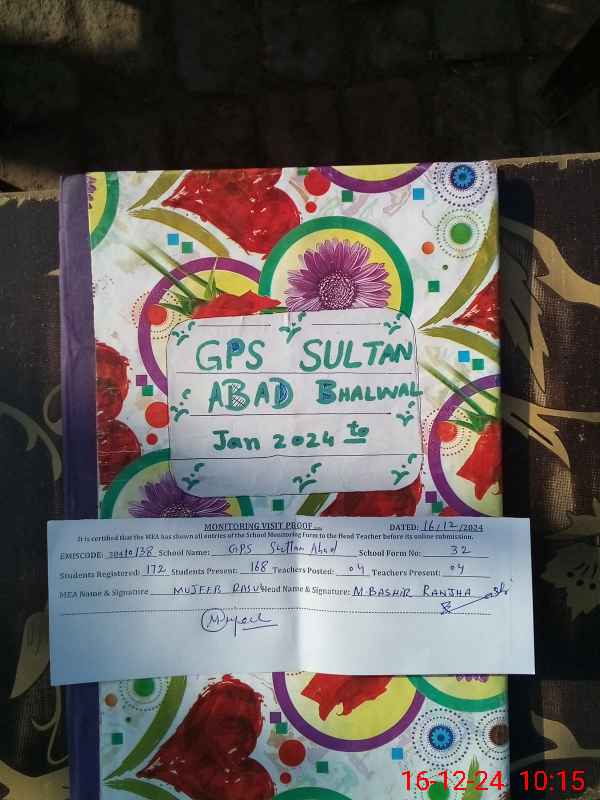 GPS SULTAN
ABAD BHALWAL
Jan 2024 to
MONITORING VISIT PROOF
DATED: 16/12/2024
It is certified that the MEA has shown all entries of the School Monitoring Form to the Head Teacher before its online submission.
EMISCODE: 38410138 School Name: GPS Sultan Abad School Form No: 32
Students Registered: 172 Students Present: 168 Teachers Posted: 04 Teachers Present: 04
MEA Name & Signature MUJEEB RASUL Head Name & Signature: M.BASHIR RANJHA
16-12-24 10:15